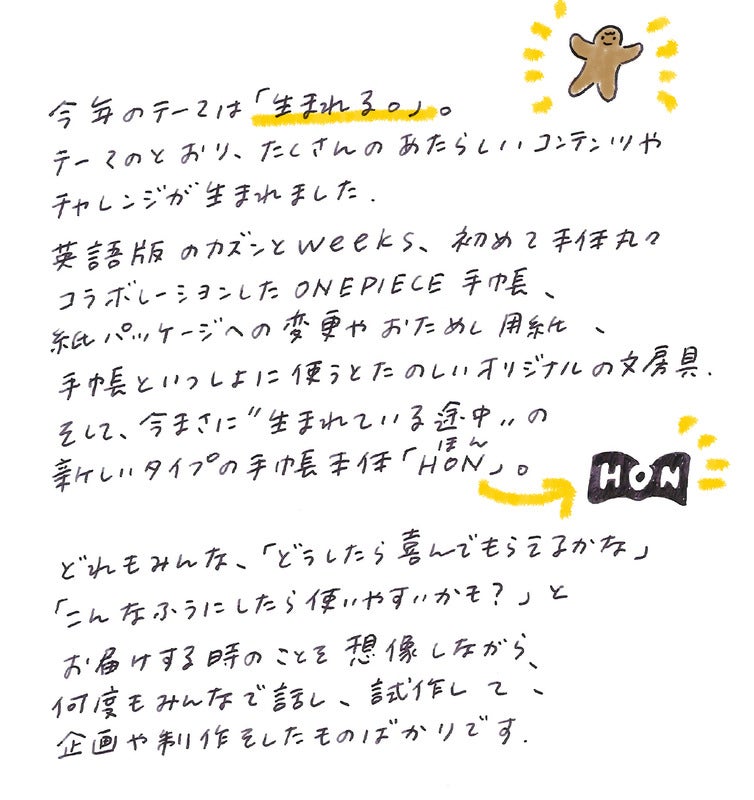 今年のテーマは「生まれる。」。
テーマのとおり、たくさんのあたらしいコンテンツや
チャレンジが生まれました。
英語版のカズンとweeks、初めて手帳本体丸々
コラボレーションしたONE PIECE手帳、
紙パッケージへの変更やおためし用紙、
手帳といっしょに使うとたのしいオリジナルの文房具。
そして、今まさに“生まれている途中”の
ほん
新しいタイプの手帳本体「HON」。
HON
どれもみんな、「どうしたら喜んでもらえるかな」
「こんなふうにしたら使いやすいかも?」と
お届けする時のことを想像しながら、
何度もみんなで話し、試作して、
企画や制作をしたものばかりです。